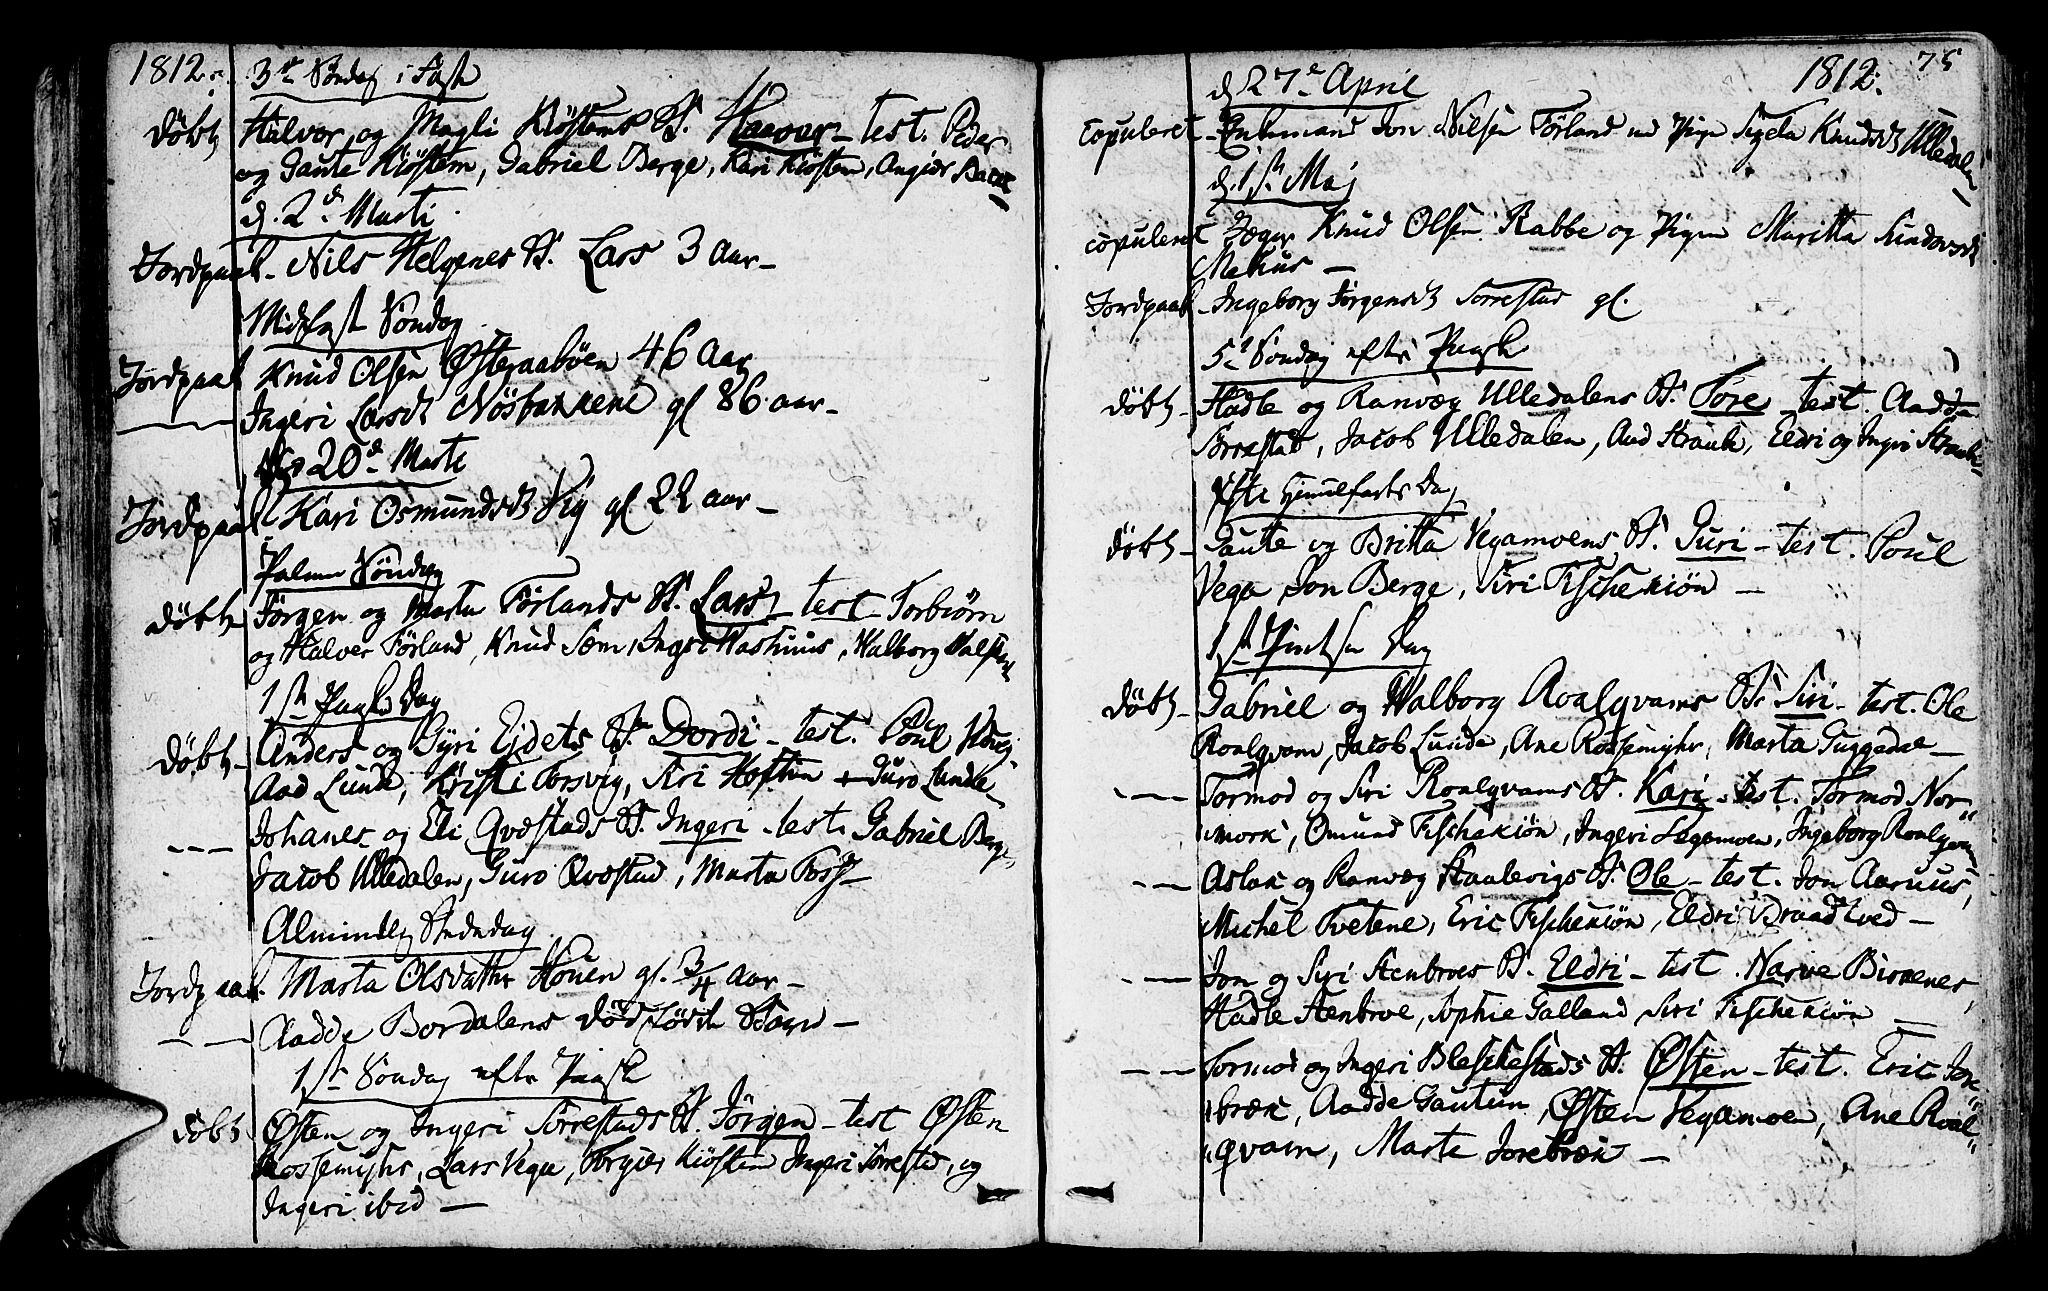 1812.
3die Søndag i Faste
døbt Halvor og Magli Kiøstems B. Haavar – test. Peder
og Gaute Kiøstem, Gabriel Berge, Kari Kiøstem, Angier
d. 2d Marti
Jordpaak. – Nils Helgenes B. Lars 3 Aar –
Midfaste Søndag
Jordpaak Knud Olsen Østeraabøen 46 Aar
— Ingeri Larsdt Nøsbakkene gl 86 aar –
20d Marti
Jordpaak Kari Osmundsdt Vig gl 22 aar –
Palme Søndag
døbt Jørgen og Marta Førlands B. Lars – test – Torbiørn
og Halver Førland, Knud Sæm, Ingeri Vashuus, Valborg
1ste Paaske Dag
døbt – Anders og Gyri Eidets B. Dordi – test. Poul
Aad Lunde, Kristi Torsvig, Siri Hoftun + Guro Lunde –
--- Johanes og Eli Qvæstads B. Ingeri – test. Gabriel Berge
Jacob Ulledalen, Guro Qvæstad, Marta Foss –
Almindelig Bededag
Jordpaak. Marta Olsdatter Houen gl. 3/4 Aar –
— — Aadde Bordalens død fødde Barn –
1ste Søndag efter Paaske
døbt Østen og Ingeri Sørrestads B. Jørgen – test Østen
Rossemyhr, Lars Vega, Torgier Kiøstem Ingeri Sørrestad, og
Ingeri ibid –
1812. 75
d. 27de April
Copuleret – Enkemand Jon Nilsen Førland med Pigen Sygda Knudsdt Ulledalen
d. 1ste Maj
copuleret Jæger Knud Olsen Rabbe og Pigen Maritta
Mehus –
Jordpaak – Ingeborg Jørgensdt Sørrestad gl.
5te Søndag efter Paaske
døbt – Hadle og Ranvæg Ulledalens B. Tore test. Aadde
Sørrestad, Jacob Ulledalen, Aad Straule, Eldri og Ingeri Straule
Christi Himmelfarts Dag
døbt – Gaute og Britta Vegamoens B. Guri – test. Poul
Vega Jon Berge, Siri Fischekiøn –
1ste Pintse Dag
døbt – Gabriel og Walborg Roalqvams B. Siri – test. Ole
Roalqvam, Jacob Lunde, Ane Rossemyhr, Marta Guggedal –
--- Tormod og Siri Roalqvams B. Kari – test. Tormod Nor"
"mork, Omund Fischekiøn, Ingeri Vegamoen, Ingeborg Roalqvam
--- Aslak og Ranvæg Haalevigs B. Ole – test. Jon Aarhuus,
Michel Tvetene, Eric Fischekiøn, Eldri Braadtved –
--- Jon og Siri Stenbroes B. Eldri – test. Narve Birkenes,
Hadle Stenbroe, Sophie Galland, Siri Fischekiøn –
--- Tormod og Ingeri Bleschestads B. Østen – test. Eric Jore"
"bræk, Aadde Gautun, Østen Vegamoen, Ane Roal"
"qvam, Marte Jorebræk –